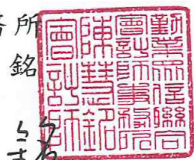 所
銘
勤業眾信聯合
會計師事務所
陳慧銘
會計師